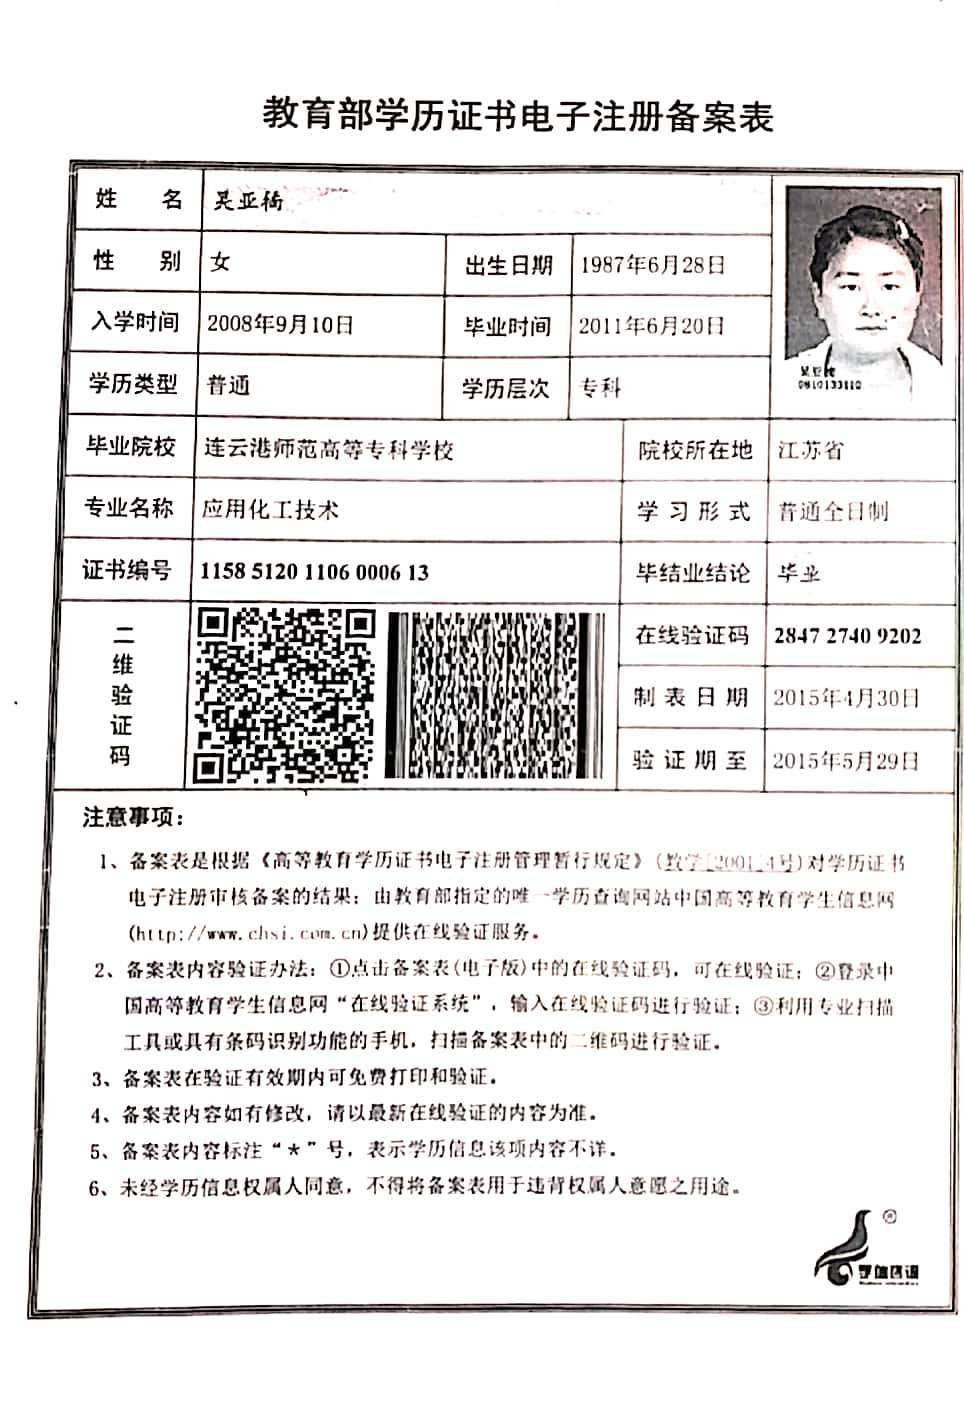 教育部学历证书电子注册备案表
姓 名 吴亚楠
性 别 女 出生日期 1987年6月28日
入学时间 2008年9月10日 毕业时间 2011年6月20日
学历类型 普通 学历层次 专科
0810133110
毕业院校 连云港师范高等专科学校 院校所在地 江苏省
专业名称 应用化工技术 学习形式 普通全日制
证书编号 1158 5120 1106 0006 13 毕结业结论 毕业
二维验证码
在线验证码 2847 2740 9202
制表日期 2015年4月30日
验证期至 2015年5月29日
注意事项：
1、备案表是根据《高等教育学历证书电子注册管理暂行规定》(教学[2001]4号)对学历证书
电子注册审核备案的结果；由教育部指定的唯一学历查询网站中国高等教育学生信息网
(http://www.chsi.com.cn)提供在线验证服务。
2、备案表内容验证办法：①点击备案表(电子版)中的在线验证码，可在线验证；②登录中
国高等教育学生信息网“在线验证系统”，输入在线验证码进行验证；③利用专业扫描
工具或具有条码识别功能的手机，扫描备案表中的二维码进行验证。
3、备案表在验证有效期内可免费打印和验证。
4、备案表内容如有修改，请以最新在线验证的内容为准。
5、备案表内容标注“*”号，表示学历信息该项内容不详。
6、未经学历信息权属人同意，不得将备案表用于违背权属人意愿之用途。
®
学信咨询